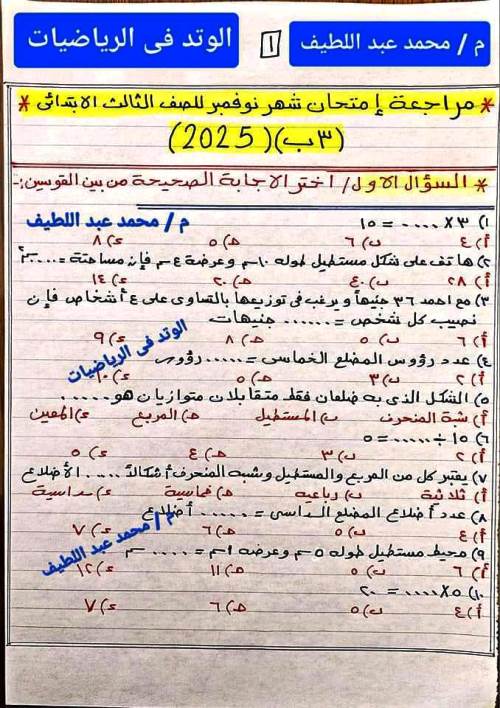 م / محمد عبد اللطيف
١
الوتد فى الرياضيات
* مراجعة إمتحان شهر نوفمبر للصف الثالث الابتدائى *
(٣ب)(2025)
* السؤال الاول / اختر الاجابة الصحيحة من بين القوسين:-
م / محمد عبد اللطيف
١) ٣ × ..... = ١٥
أ) ٤ ب) ٦ هـ) ٥ ء) ٨
٢) هاتف على شكل مستطيل طوله ١٠سم وعرضه ٤سم فإن مساحته = ..... سم٢
أ) ٢٨ ب) ٤٠ هـ) ٢٠ ء) ١٤
٣) مع احمد ٣٦ جنيهاً ويرغب فى توزيعها بالتساوى على ٤ أشخاص فإن
نصيب كل شخص = ...... جنيهات
أ) ٦ ب) ٥ هـ) ٨ ء) ٩
الوتد فى الرياضيات
٤) عدد رؤوس المضلع الخماسى = ...... رؤوس
أ) ٢ ب) ٣ هـ) ٥ ء) ١٠
٥) الشكل الذى به ضلعان فقط متقابلان متوازيان هو .....
أ) شبة المنحرف ب) المستطيل هـ) المربع ء) المعين
٦) ١٥ ÷ ..... = ٥
أ) ٢ ب) ٣ هـ) ٤ ء) ٥
٧) يعتبر كل من المربع والمستطيل وشبه المنحرف أشكالاً ..... الأضلاع
أ) ثلاثية ب) رباعية هـ) خماسية ء) سداسية
٨) عدد أضلاع المضلع السداسى = ...... أضلاع
أ) ٤ ب) ٥ هـ) ٦ ء) ٧
م / محمد عبد اللطيف
٩) محيط مستطيل طوله ٥سم وعرضه ١سم = ..... سم
أ) ٦ ب) ٥ هـ) ١١ ء) ١٢
١٠) ٥ × ..... = ٢٠
أ) ٤ ب) ٥ هـ) ٦ ء) ٧